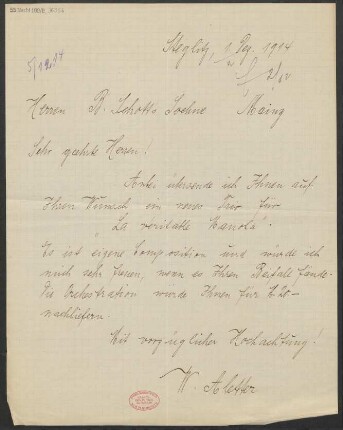 Steglitz, 1. Dez. 1904
5/12.04
Herren B. Schott's Soehne Mainz
Sehr geehrte Herren!
Anbei übersende ich Ihnen auf
Ihren Wunsch ein neues Trio für
"La veritable Manola".
Es ist eigene Composition und würde ich
mich sehr freuen, wenn es Ihren Beifall fände.
Die Orchestration würde Ihnen für
nachliefern.
Mit vorzüglicher Hochachtung!
W. Aletter